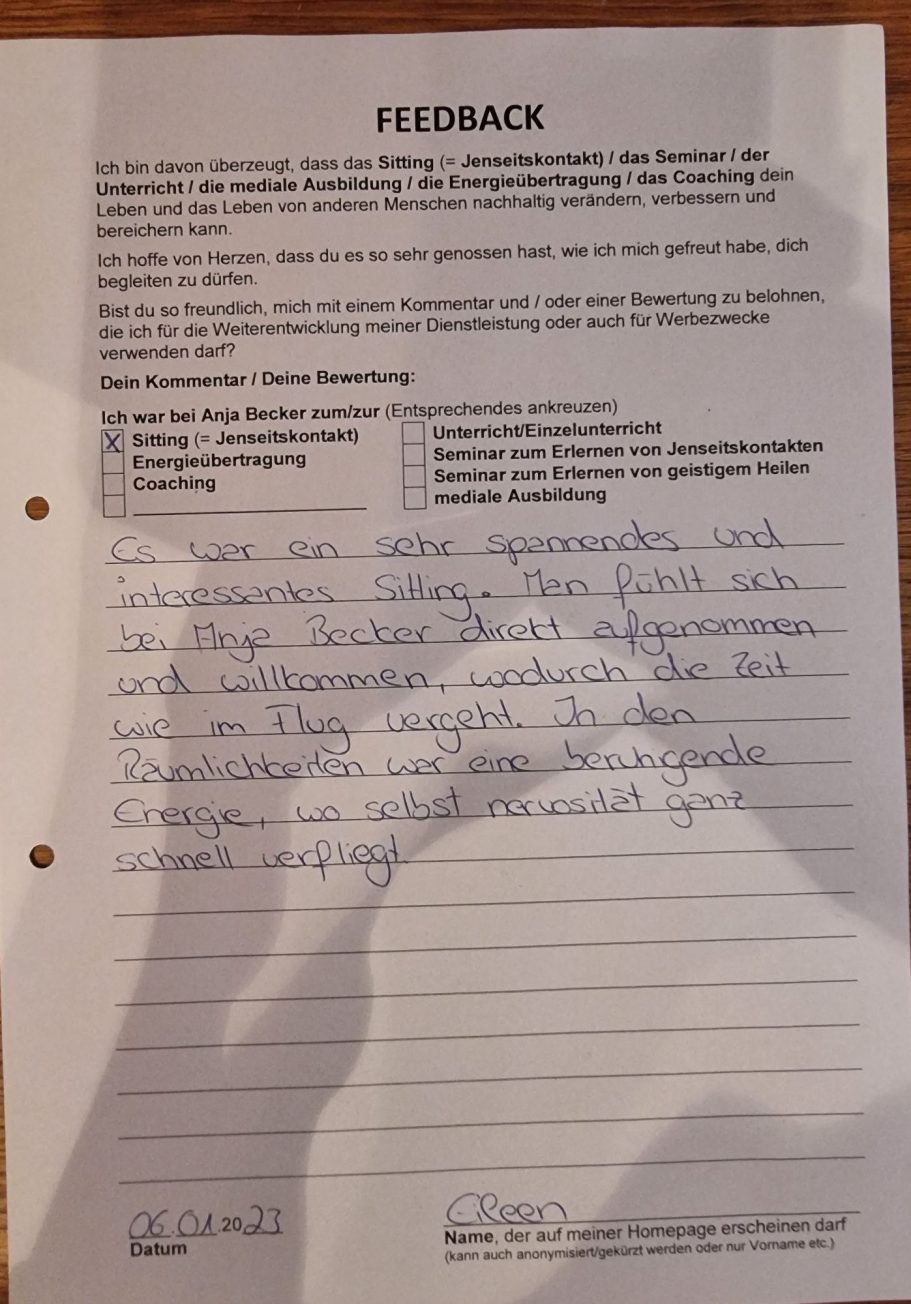 FEEDBACK
Ich bin davon überzeugt, dass das Sitting (= Jenseitskontakt) / das Seminar / der
Unterricht / die mediale Ausbildung / die Energieübertragung / das Coaching dein
Leben und das Leben von anderen Menschen nachhaltig verändern, verbessern und
bereichern kann.
Ich hoffe von Herzen, dass du es so sehr genossen hast, wie ich mich gefreut habe, dich
begleiten zu dürfen.
Bist du so freundlich, mich mit einem Kommentar und / oder einer Bewertung zu belohnen,
die ich für die Weiterentwicklung meiner Dienstleistung oder auch für Werbezwecke
verwenden darf?
Dein Kommentar / Deine Bewertung:
Ich war bei Anja Becker zum/zur (Entsprechendes ankreuzen)
X Sitting (= Jenseitskontakt)
Energieübertragung
Coaching
Unterricht/Einzelunterricht
Seminar zum Erlernen von Jenseitskontakten
Seminar zum Erlernen von geistigem Heilen
mediale Ausbildung
Es war ein sehr spannendes und
interessantes Sitting. Man fühlt sich
bei Anja Becker direkt aufgenommen
und willkommen, wodurch die Zeit
wie im Flug vergeht. In den
Räumlichkeiten war eine beruhigende
Energie, wo selbst nervosität ganz
schnell verfliegt.
06.01.2023
Datum
Eileen
Name, der auf meiner Homepage erscheinen darf
(kann auch anonymisiert/gekürzt werden oder nur Vorname etc.)